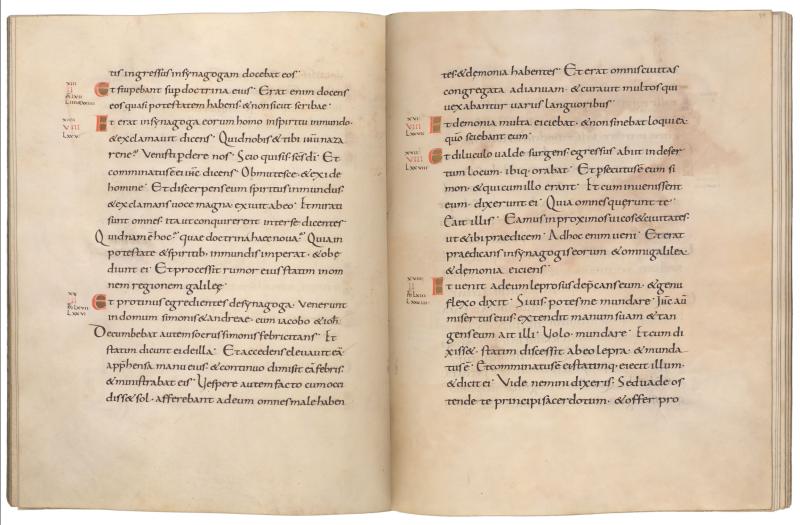 tis ingressus insynagogam docebat eos
XIII
II
Et stupebant sup doctrina eius Erat enim docens
eos quasi potestatem habens & non sicut scribae
XIIII
VIII
Et erat insynagoga eorum homo inspiritu inmundo
& exclamauit dicens Quid nobis & tibi ihu naza
rene Venisti pdere nos Scio quis es scs di Et
comminatus e ei ihs dicens Obmutesce & exi de
homine Et discerpens eum spiritus inmundus
& exclamans uoce magna exiuit ab eo Et mirati
sunt omnes ita ut conquirerent inter se dicentes
Quidnam e hoc quae doctrina haec noua Quia in
potestate & spiritib; inmundis imperat & obę
diunt ei Et processit rumor eius statim in om
nem regionem galileę
XV
II
Et protinus egredientes desynagoga Venerunt
in domum simonis & andreae cum iacobo & ioh
Decumbebat autem socrus simonis febricitans Et
statim dicunt ei de illa Et accedens eleuauit eā
appraehensa manu eius & continuo dimisit eā febris
& ministrabat eis Vespere autem facto cum occi
diss& sol afferebant ad eum omnes male haben
tes & demonia habentes Et erat omnis ciuitas
congregata ad ianuam & curauit multos qui
uexabantur variis languoribus
XVI
VIII
Et demonia multa eiciebat & non sinebat loqui ea
quō sciebant eum
XVII
VIII
Et diluculo ualde surgens egressus abiit in deser
tum locum ibiq; orabat Et psecutus e eum si
mon & qui cum illo erant Et cum inuenissent
eum dixerunt ei Quia omnes quęrunt te
Et ait illis Eamus in proximos uicos & ciuitates
ut & ibi praedicem Ad hoc enim ueni Et erat
praedicans in synagogis eorum & omni galilea
& demonia eiciens
XVIII
II
Et uenit ad eum leprosus depcans eum & genu
flexo dixit Si uis potes me mundare Ihc aū
misertus eius extendit manum suam & tan
gens eum ait illi Volo mundare Et cum di
xiss& statim discessit ab eo lepra & munda
tus ē Et comminatus e ei statimq; eiecit illum
& dicit ei Vide nemini dixeris Sed uade os
tende te principi sacerdotum & offer pro